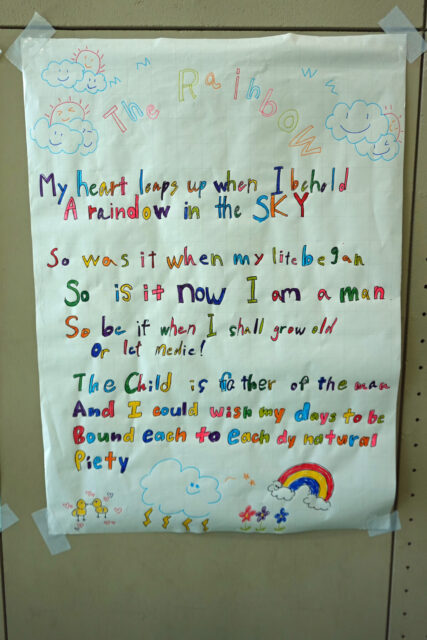 The Rainbow
My heart leaps up when I behold
A raindow in the SKY
So was it when my lite began
So is it now I am a man
So be if when I shall grow old
Or let medie!
The Child is father of the man
And I could wish my days to be
Bound each to each dy natural
Piety